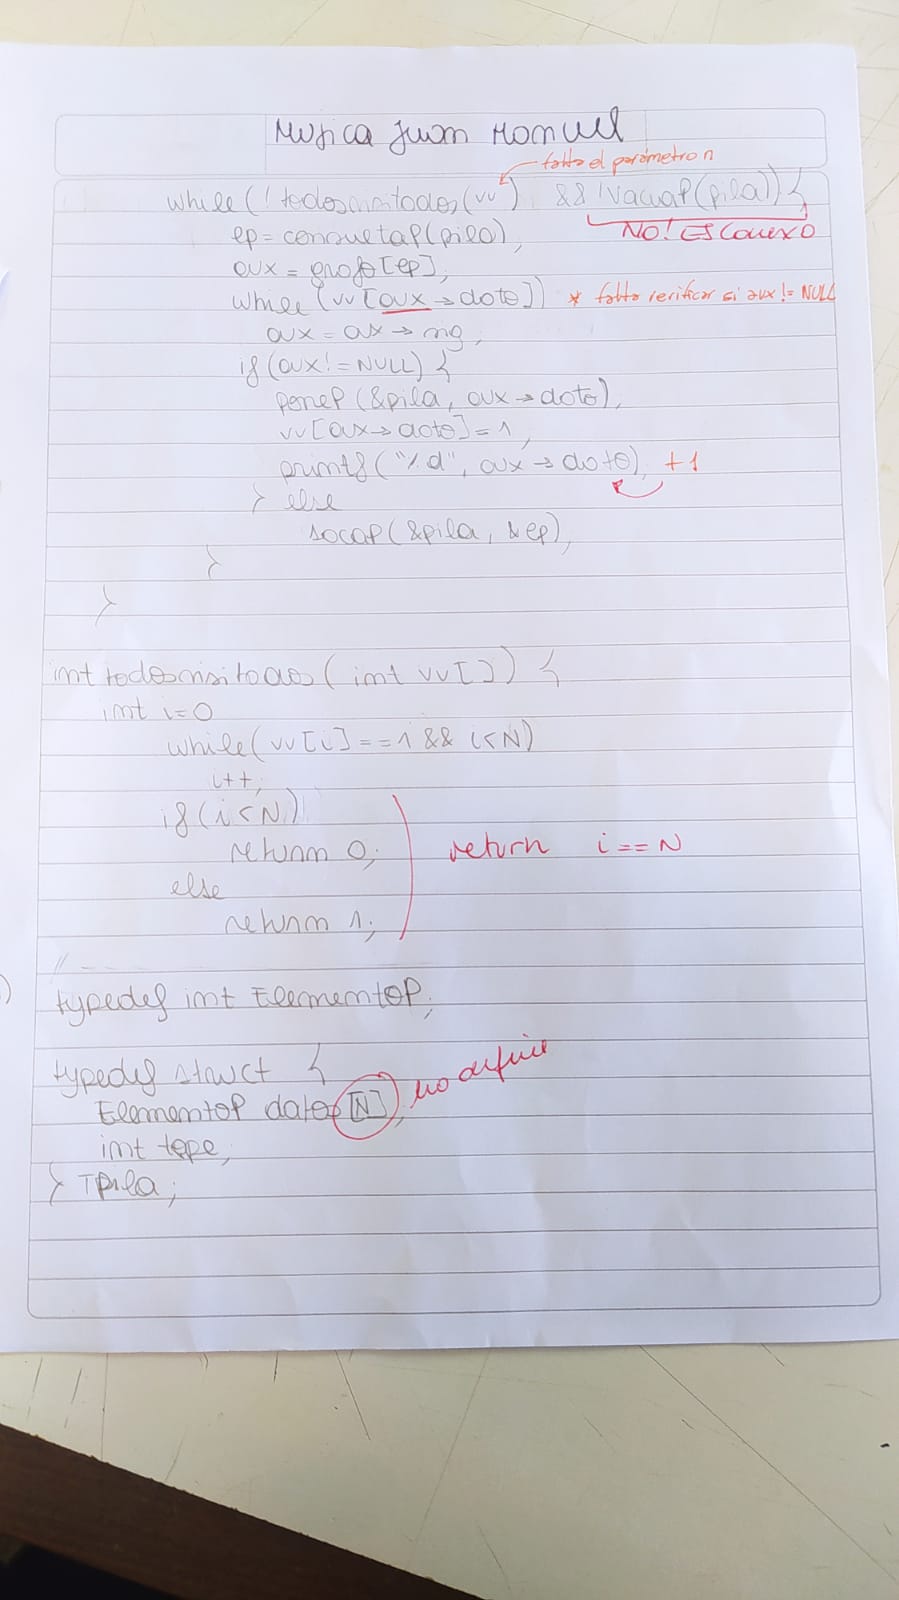 Mujica Juan Manuel
falta el parámetro n
while(! todosvisitados(vv) && !vaciaP(pila)) {
NO! ES CONEXO
ep = consultaP(pila);
aux = grafo[ep];
while (vv[aux→dato]) * falta verificar si aux != NULL
aux = aux → sig;
if (aux != NULL) {
poneP (&pila, aux → dato);
vv[aux→dato] = 1;
printf("%d", aux → dato); +1
} else
sacaP(&pila, &ep);
}
}
int todosvisitados( int vv[]) {
int i=0
while( vv[i]==1 && i<N)
i++;
if(i<N)
return 0; return i==N
else
return 1;
)
typedef int ElementoP;
typedef struct {
ElementoP datos[N]; no define
int tope;
} TPila;